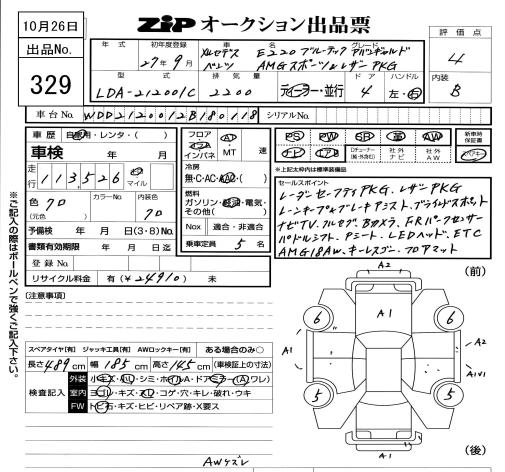 10月26日
ZIP オークション出品票
評価点
4
出品No.
329
年式
初年度登録
27年9月
車名
メルセデス
ベンツ
グレード
E220 ブルーテック アバンギャルド
AMGスポーツ/レザーPKG
型式
LDA-212001C
排気量
2200
ディーラー・並行
ドア
4
ハンドル
左・右
内装
B
車台No.
WDD2120012B180118
シリアルNo.
車歴
自家用・レンタ・( )
車検
年 月
走行
113,526
km
マイル
色
クロ
(元色)
カラーNo.
内装色
クロ
予備検 年 月 日(3・8)No.
書類有効期限 年 月 日迄
登録No.
リサイクル料金 有(¥24910)未
フロア
コラム
インパネ
AT
・MT
速
冷房
無・C・AC・AAC・( )
燃料
ガソリン・軽油・電気・
その他( )
Nox 適合・非適合
乗車定員 5 名
PS
PW
SR
革
AW
ナビ
TV
エアB
Dチューナー
(純・外含む)
社外
ナビ
社外
AW
新車時
保証書
↑記上太枠内は標準装備品
セールスポイント
レーダーセーフティPKG. レザーPKG
レーンキープ&ブレーキアシスト. ブラインドスポット
ナビTV. フルセグ. Bカメラ. FRパークセンサー
パドルシフト. Pシート. LEDヘッド. ETC
AMG18AW. キーレスゴー. フロアマット
※ご記入の際はボールペンで強くご記入下さい。
[注意事項]
スペアタイヤ[有] ジャッキ工具[有] AWロックキー[有] ある場合のみ○
長さ 489 cm 幅 185 cm 高さ 145 cm (車検証上の寸法)
検査記入
外装
小キズ・AU・シミ・ホイルA・ドアミラー(A)ワレ)
室内
ヨゴレ・キズ・スレ・コゲ・穴・キレ・破れ・ウキ
FW
トビ石・キズ・ヒビ・リペア跡・X要ス
AWケズレ
(前)
A2
A1
6
6
A1
A2
A1V1
5
5
A1
(後)